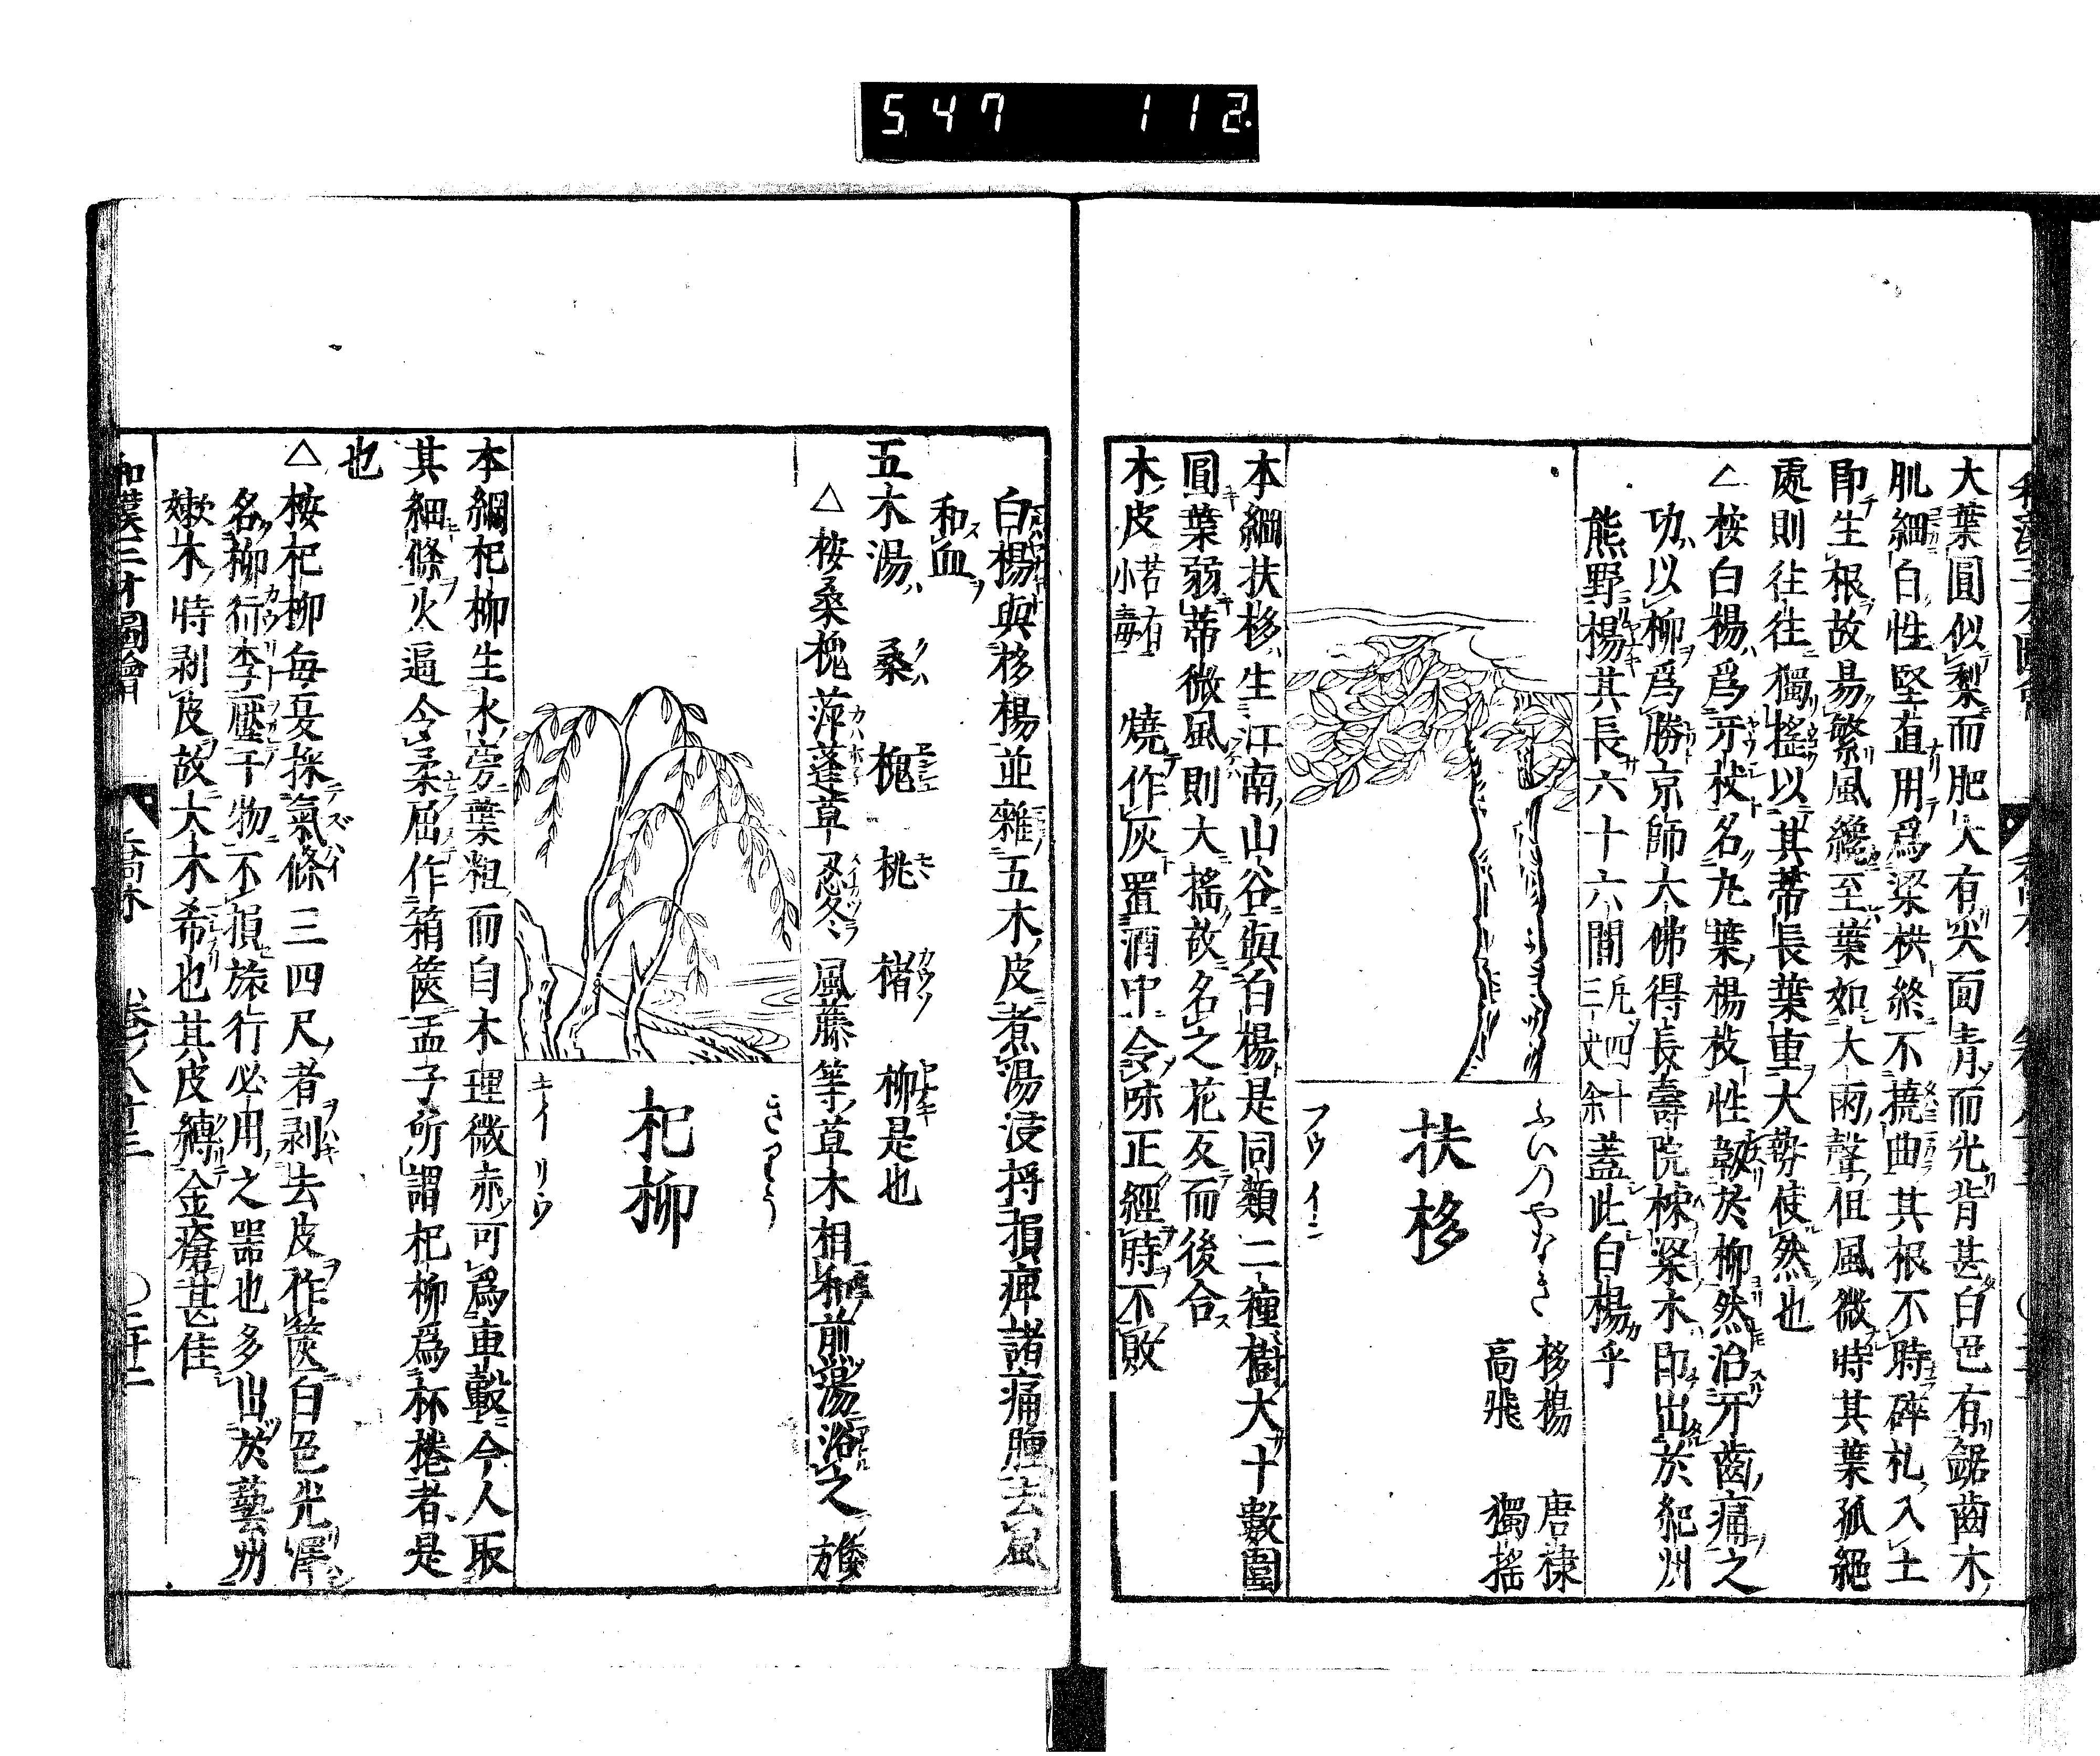 5 47 112.
大葉圓似梨而肥大有尖面青而光背甚白色有鋸齒木
肌細白性堅直用爲梁栱終不撓曲其根不時碎札入土
即生根故易繁風纔至葉如大雨聲但風微時其葉孤絕
處則往往獨搖以其蒂長葉重大勢使然也
△按白楊爲牙杖名丸葉楊枝性靱於柳然治牙齒痛之
功以柳爲勝京師大佛得長壽院棟梁木即出於紀州
熊野楊其長六十六間凡四十三丈余蓋此白楊乎
ふいのやなぎ
栘楊 唐棣
高飛 獨搖
扶栘
フウイ
本綱扶栘生江南山谷與白楊是同類二種樹大十數圍
圓葉弱蒂微風則大搖故名之花反而後合
木皮苦有小毒 燒作灰置酒中令味正經時不敗
白楊與栘楊並雜五木皮煮湯浸捋損痺諸痛腫去風
和血
五木湯 桑クハ 槐エンジユ 桃モモ 楮カウゾ 柳ヤナギ是也
△按桑槐萍蓬草忍冬風藤等草木相和煎湯浴之
きりう
杞柳
キイリウ
本綱杞柳生水旁葉粗而白木理微赤可爲車轂今人取
其細條火逼令柔屈作箱篋孟子所謂杞柳爲杯棬者是
也
△按杞柳每夏採氣條三四尺者剥去皮作篋白色光澤
名柳行李壓干物不損旅行必用之器也多出於藝州
嫰木時剥皮故大木希也其皮縛金瘡甚佳
和漢三才圖會 喬木 卷ノ八十三 ○二十二